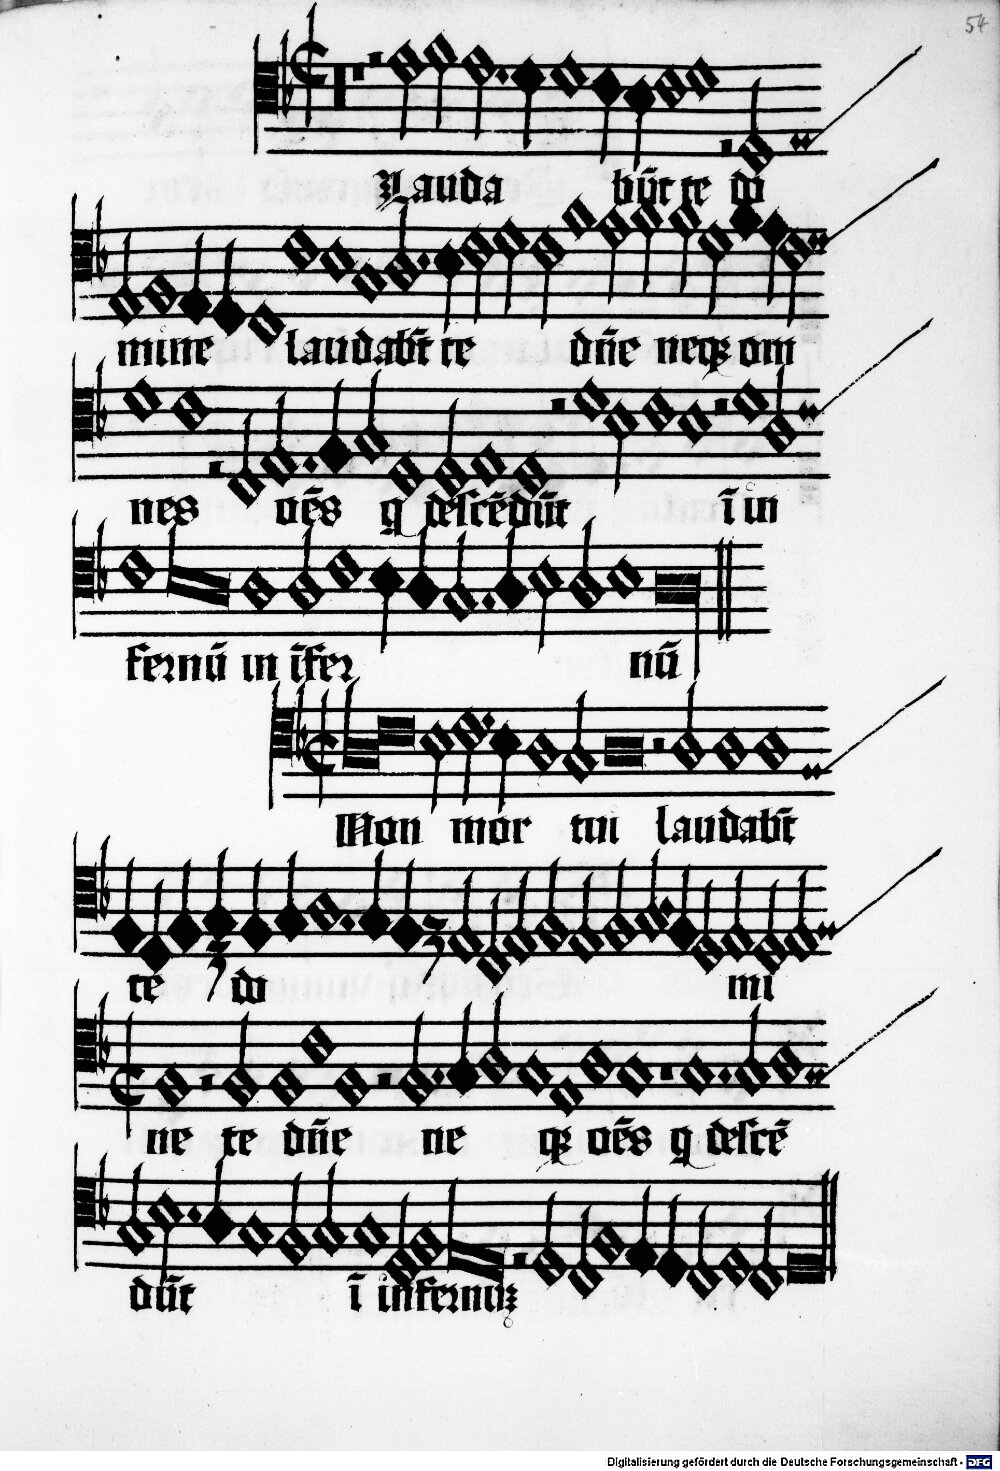 54
Lauda bũt te do
mine laudabt̃ te dñe neqꝫ om
nes oẽs q descẽdũt ĩ in
fernũ in ĩfer nũ
Non mor tui laudabt̃
te do mi
ne te dñe ne qꝫ oẽs q descẽ
dũt ĩ infernuꝫ
Digitalisierung gefördert durch die Deutsche Forschungsgemeinschaft - DFG